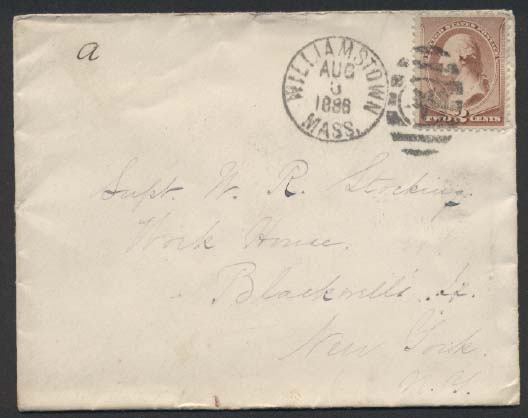 a
WILLIAMSTOWN
AUG
1886
MASS.
UNITED STATES POSTAGE
TWO 2 CENTS
Supt. W. R. Stocking.
Work House.
Blackwell's
New York.
N.Y.